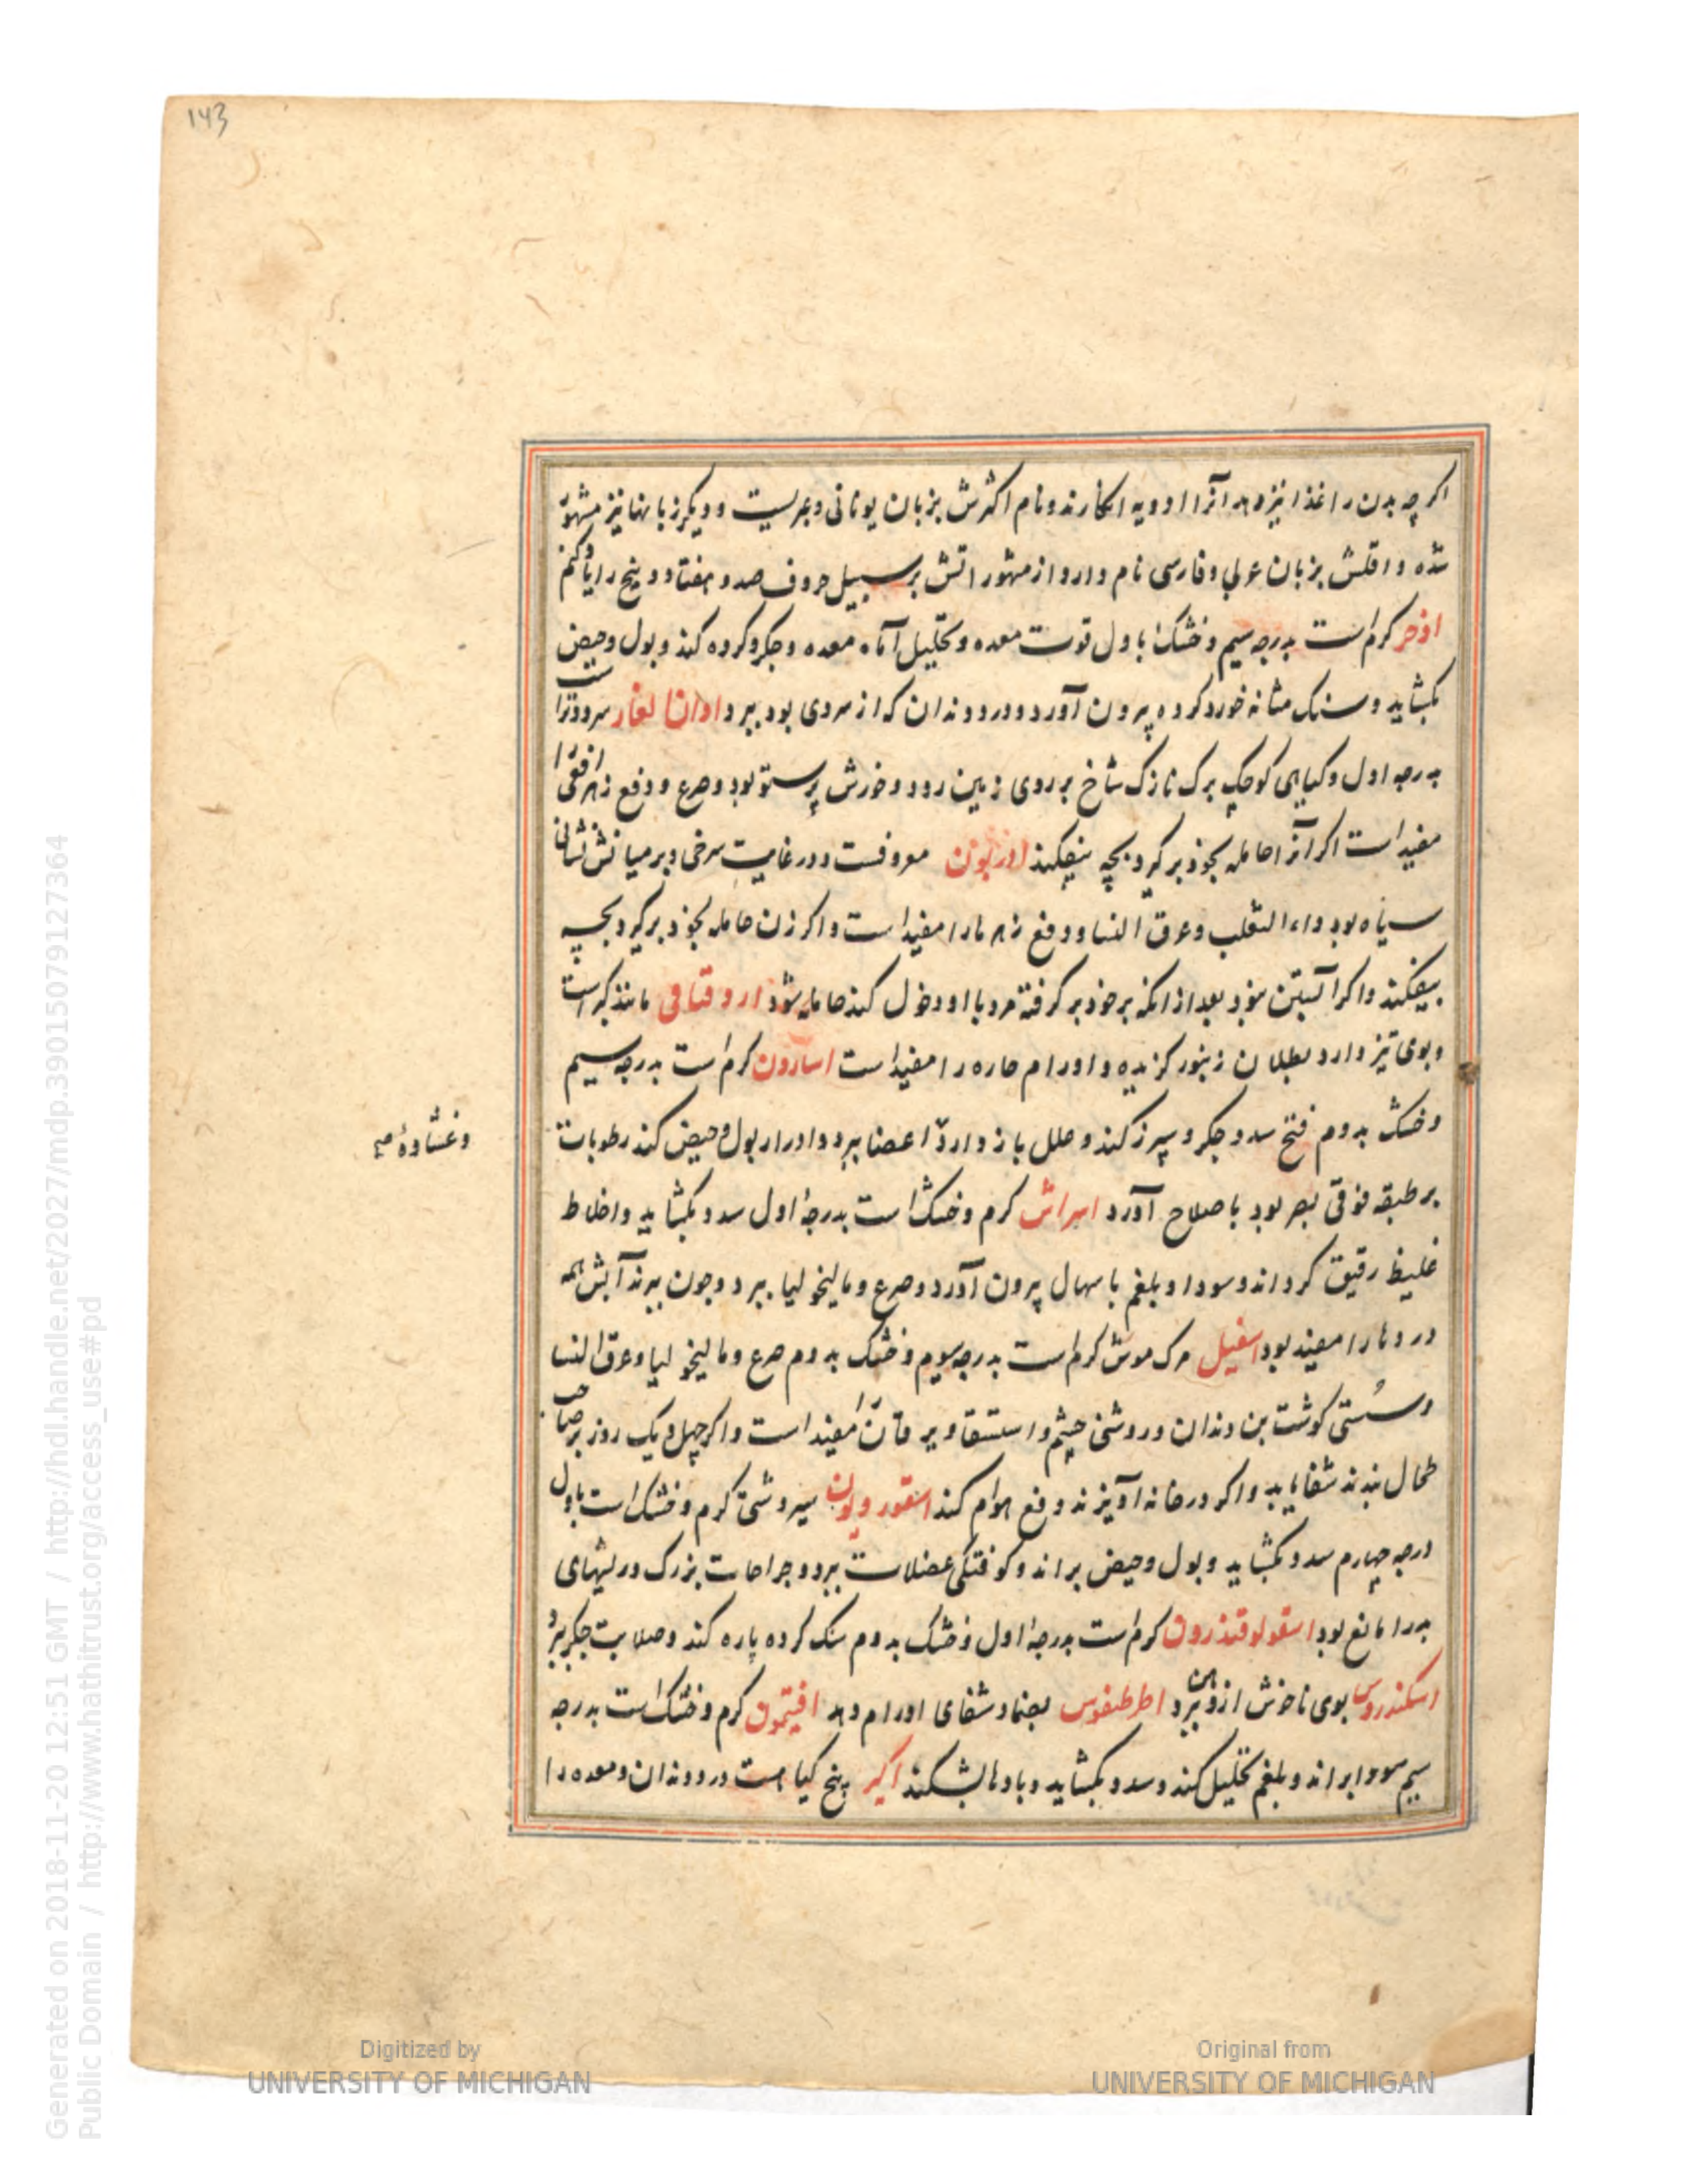 143
اکر چه بدن را غذا نیز دهد آنرا ادویه انکارند و نام اکثرش بزبان یونانی و عبریست و دیکر زبانها نیز مشهور
شده و اقلش بزبان عربی و فارسی نام دارد از مشهوراتش بر سبیل حروف صد و هفتاد و پنج را یاد کنم
اذخر کرم است بدرجه سیم و خشک باول قوت معده و تحلیل آماه معده و جکر و کرده کند و بول و حیض
بکشاید و سنک مثانه خورد کرده بیرون آورد و درد دندان که از سردی بود ببرد اذان الفار سرد و تر است
بدرجه اول و کیاهی کوچک برک نازک شاخ بر روی زمین رود و خورش پرستو بود و صرع و دفع زهر افعی را
مفید است اکر آنرا حامله بخود برکیرد بچه بیفکند اذریون معروفست و در غایت سرخی و بر میانش نشانی
سیاه بود داء الثعلب و عرق النسا و دفع زهرها را مفید است و اکر زن حامله بخود برکیرد بچه
بیفکند و اکر آبستن نبود بعد از انکه بر خود برکرفته مرد با او دخول کند حامله شود اروقتاقی مانند کبر است
و بوی تیز دارد بطلان زنبور کزیده و اورام حاره را مفید است اسارون کرم است بدرجه سیم
و خشک بدوم فتح سدد جکر و سپرز کند و علل باز دارد اعضا ببرد و ادرار بول و حیض کند رطوبات
وغشاوهٔ صح
بر طبقه فوقی بصر بود باصلاح آورد اسراش کرم و خشک است بدرجهٔ اول سدد بکشاید و اخلاط
غلیظ رقیق کرداند و سودا و بلغم باسهال بیرون آورد و صرع و مالیخولیا ببرد و چون ببرند آبش همه
دردها را مفید بود اسقیل مرک موش کرم است بدرجه سوم و خشک بدوم صرع و مالیخولیا و عرق النسا
و سستی کوشت بن دندان و روشنی چشم و استسقا و یرقان را مفید است و اکر چهل و یک روز بر صاحب
طحال بندند شفا یابد و اکر در خانه آویزند دفع هوام کند اسقوردیون سیر دشتی کرم و خشک است باول
درجه چهارم سدد بکشاید و بول و حیض براند و کوفتکی عضلات ببرد و جراحات بزرک و ریشهای
بد را مانع بود اسقولوقندرون کرم است بدرجهٔ اول و خشک بدوم سنک کرده پاره کند و صلابت جکر ببرد
اسکندروس بوی ناخوش از دهن ببرد اطرطیفوس بضماد شفای اورام دهد افیتمون کرم و خشک است بدرجه
سیم سودا براند و بلغم تحلیل کند و سدد بکشاید و بادها بشکند اکیر پنج کیا است درد دندان و معده را
Generated on 2018-11-20 12:51 GMT / http://hdl.handle.net/2027/mdp.39015079127364
Public Domain / http://www.hathitrust.org/access_use#pd
Digitized by
UNIVERSITY OF MICHIGAN
Original from
UNIVERSITY OF MICHIGAN